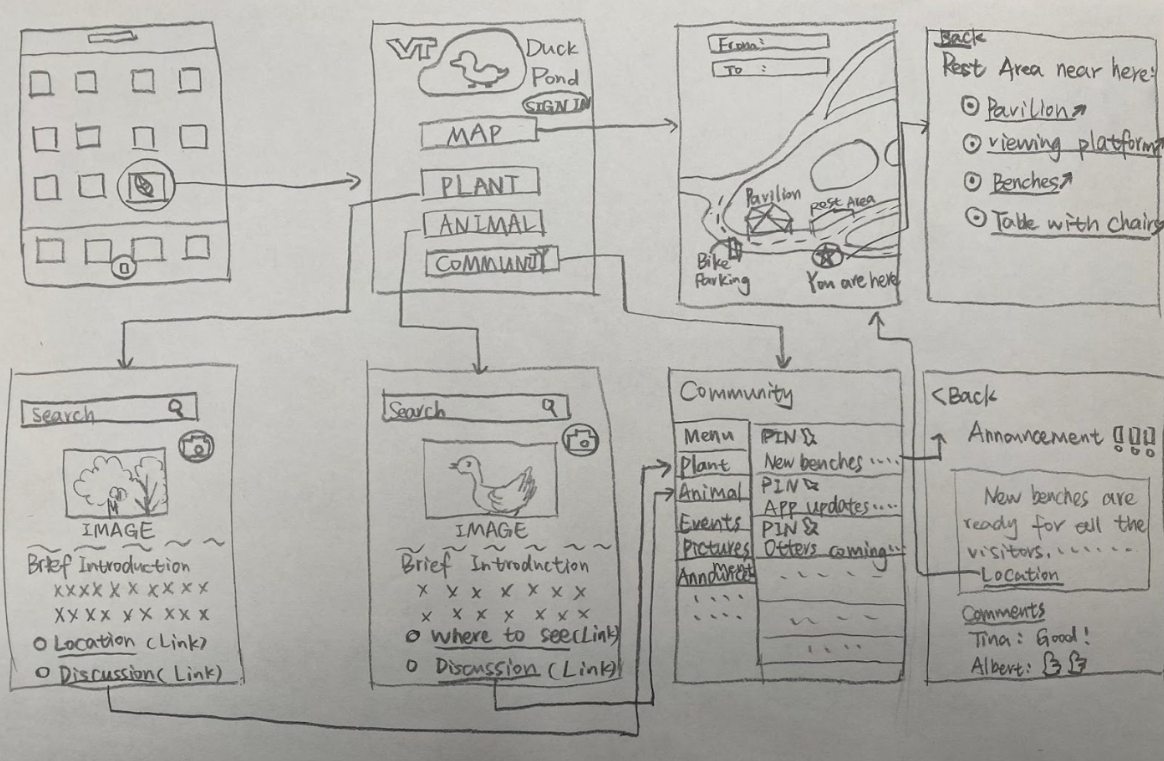 VT
Duck
Pond
SIGN IN
MAP
PLANT
ANIMAL
COMMUNITY
From:
To :
Pavilion
Rest Area
Bike
Parking
You are here
Back
Rest Area near here:
Pavilion
viewing platform
Benches
Table with chairs
Search
IMAGE
Brief Introduction
xxxx x x x x x x
x x x x x x x x x
Location (Link)
Discussion (Link)
Search
IMAGE
Brief Introduction
x x x x x x x
x x x x x x
Where to see (Link)
Discussion (Link)
Community
Menu
Plant
Animal
Events
Pictures
Announcement
PIN
New benches ....
PIN
App updates....
PIN
Otters coming...
<Back
Announcement !!!
New benches are
ready for all the
visitors.......
Location
Comments
Tina: Good!
Albert: